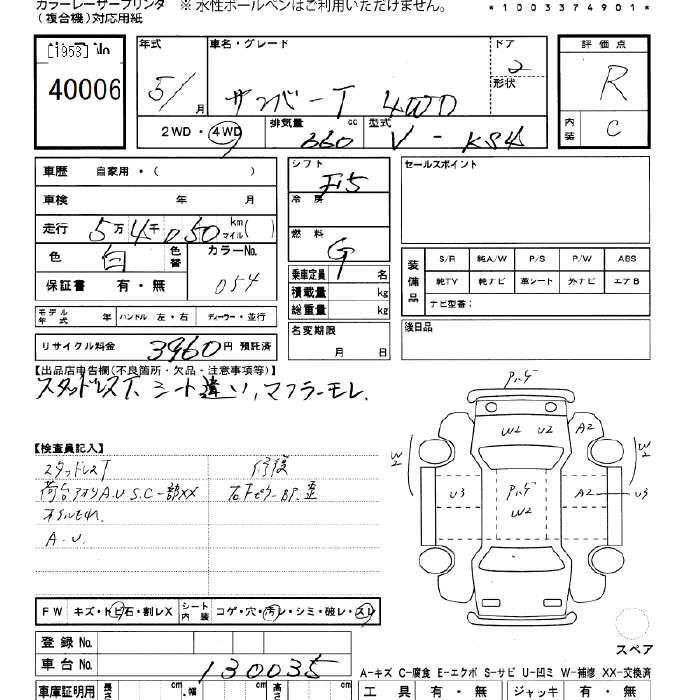 カラーレーザープリンタ ※ 水性ボールペンはご利用いただけません。
(複合機)対応用紙
*1003374901*
[1953]
40006
年式 車名・グレード ドア 評価点
5/ 月 サンバーT 4WD 2 R
形状
2WD・4WD 排気量 cc 660 型式 V-KS4 内装 C
車歴 自家用・( ) シフト F5 セールスポイント
車検 年 月 冷房
走行 5万4千050 km マイル( )
燃料 G
色 白 色替 カラーNo. 054
保証書 有・無
乗車定員 名
積載量 kg
総重量 kg
装備品 S/R 純A/W P/S P/W ABS
純TV 純ナビ 革シート 外ナビ エアB
ナビ型番:
モデル年式 年 ハンドル 左・右 ディーラー・並行
名変期限 月 日
後日品
リサイクル料金 3960円 預託済
【出品店申告欄(不良箇所・欠品・注意事項等)】
スタッドレスT、シート違い、マフラーモレ.
【検査員記入】
スタッドレスT 修復
荷台アオリA.U S.C一部XX
オイルもれ.
A.U.
パハゲ
W2 U2 A2
W2 W2
U3 パハゲ A2 U3
W2
FW キズ・トビ石・割レX シート内装 コゲ・穴・汚レ・シミ・破レ・スレ
登録 No.
車台 No. 130035
スペア
A-キズ C-腐食 E-エクボ S-サビ U-凹ミ W-補修 XX-交換済
車庫証明用 長さ cm 幅 cm 高さ cm
工具 有・無 ジャッキ 有・無